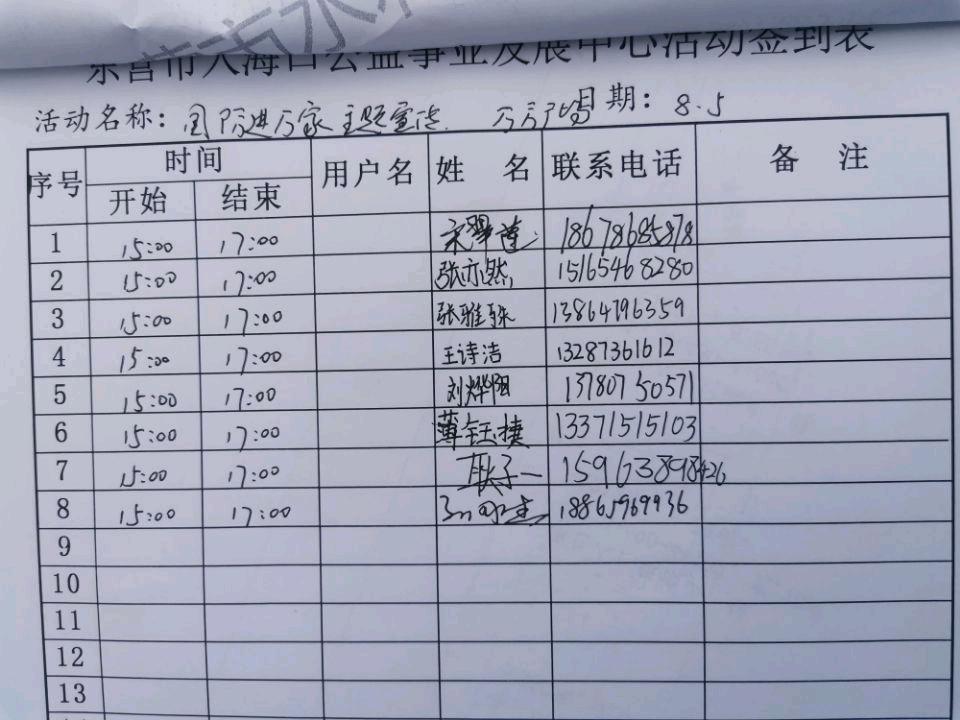 东营市入海口公益事业发展中心活动签到表
活动名称: 国防进万家主题宣传 日期: 8.5
序号 时间 用户名 姓名 联系电话 备注
开始 结束
1 15:00 17:00 18678685878
2 15:00 17:00 张亦然 15165468280
3 15:00 17:00 张雅 13864796359
4 15:00 17:00 王诗洁 13287361612
5 15:00 17:00 刘烨阳 13780750571
6 15:00 17:00 薄钰捷 13371515103
7 15:00 17:00 耿子一 15963898426
8 15:00 17:00 18865969936
9
10
11
12
13